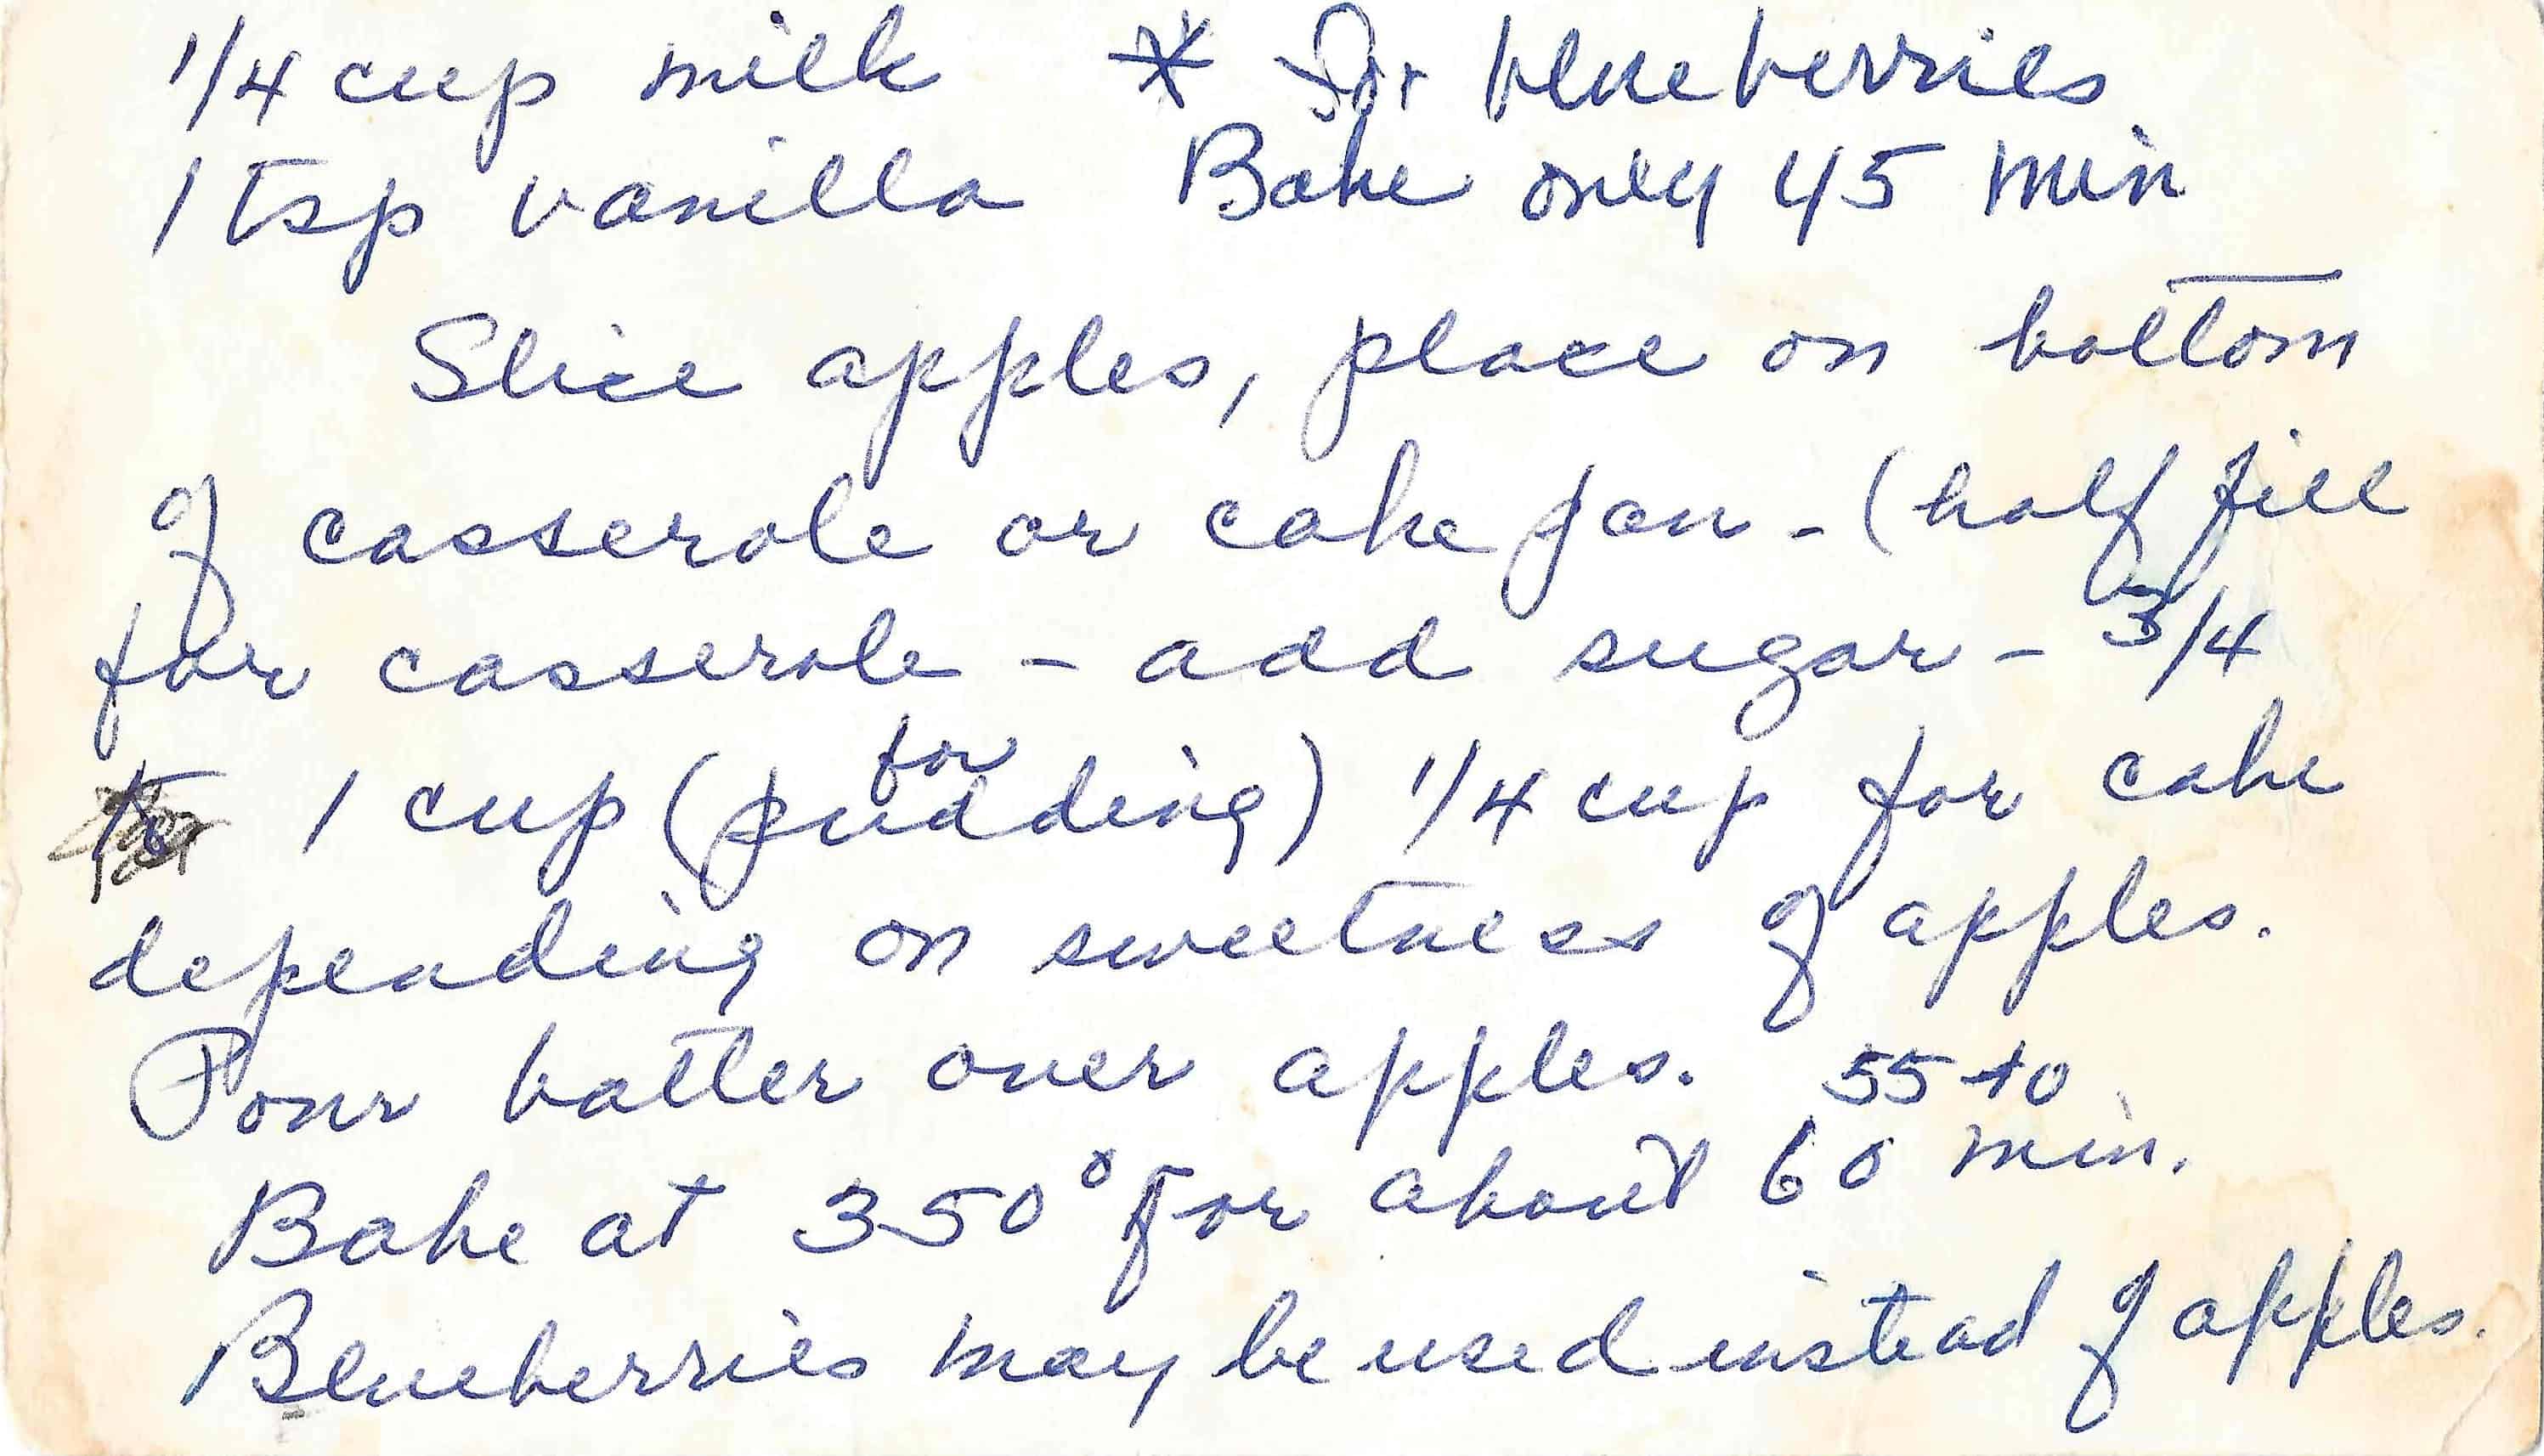 1/4 cup milk * for blueberries
1 tsp vanilla Bake only 45 min
Slice apples, place on bottom
of casserole or cake pan - (half fill
for casserole - add sugar - 3/4
to 1 cup (for pudding) 1/4 cup for cake
depending on sweetness of apples.
Pour batter over apples. 55 to
Bake at 350° for about 60 min.
Blueberries may be used instead of apples.